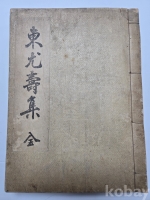 東尤壽集 全
kobay